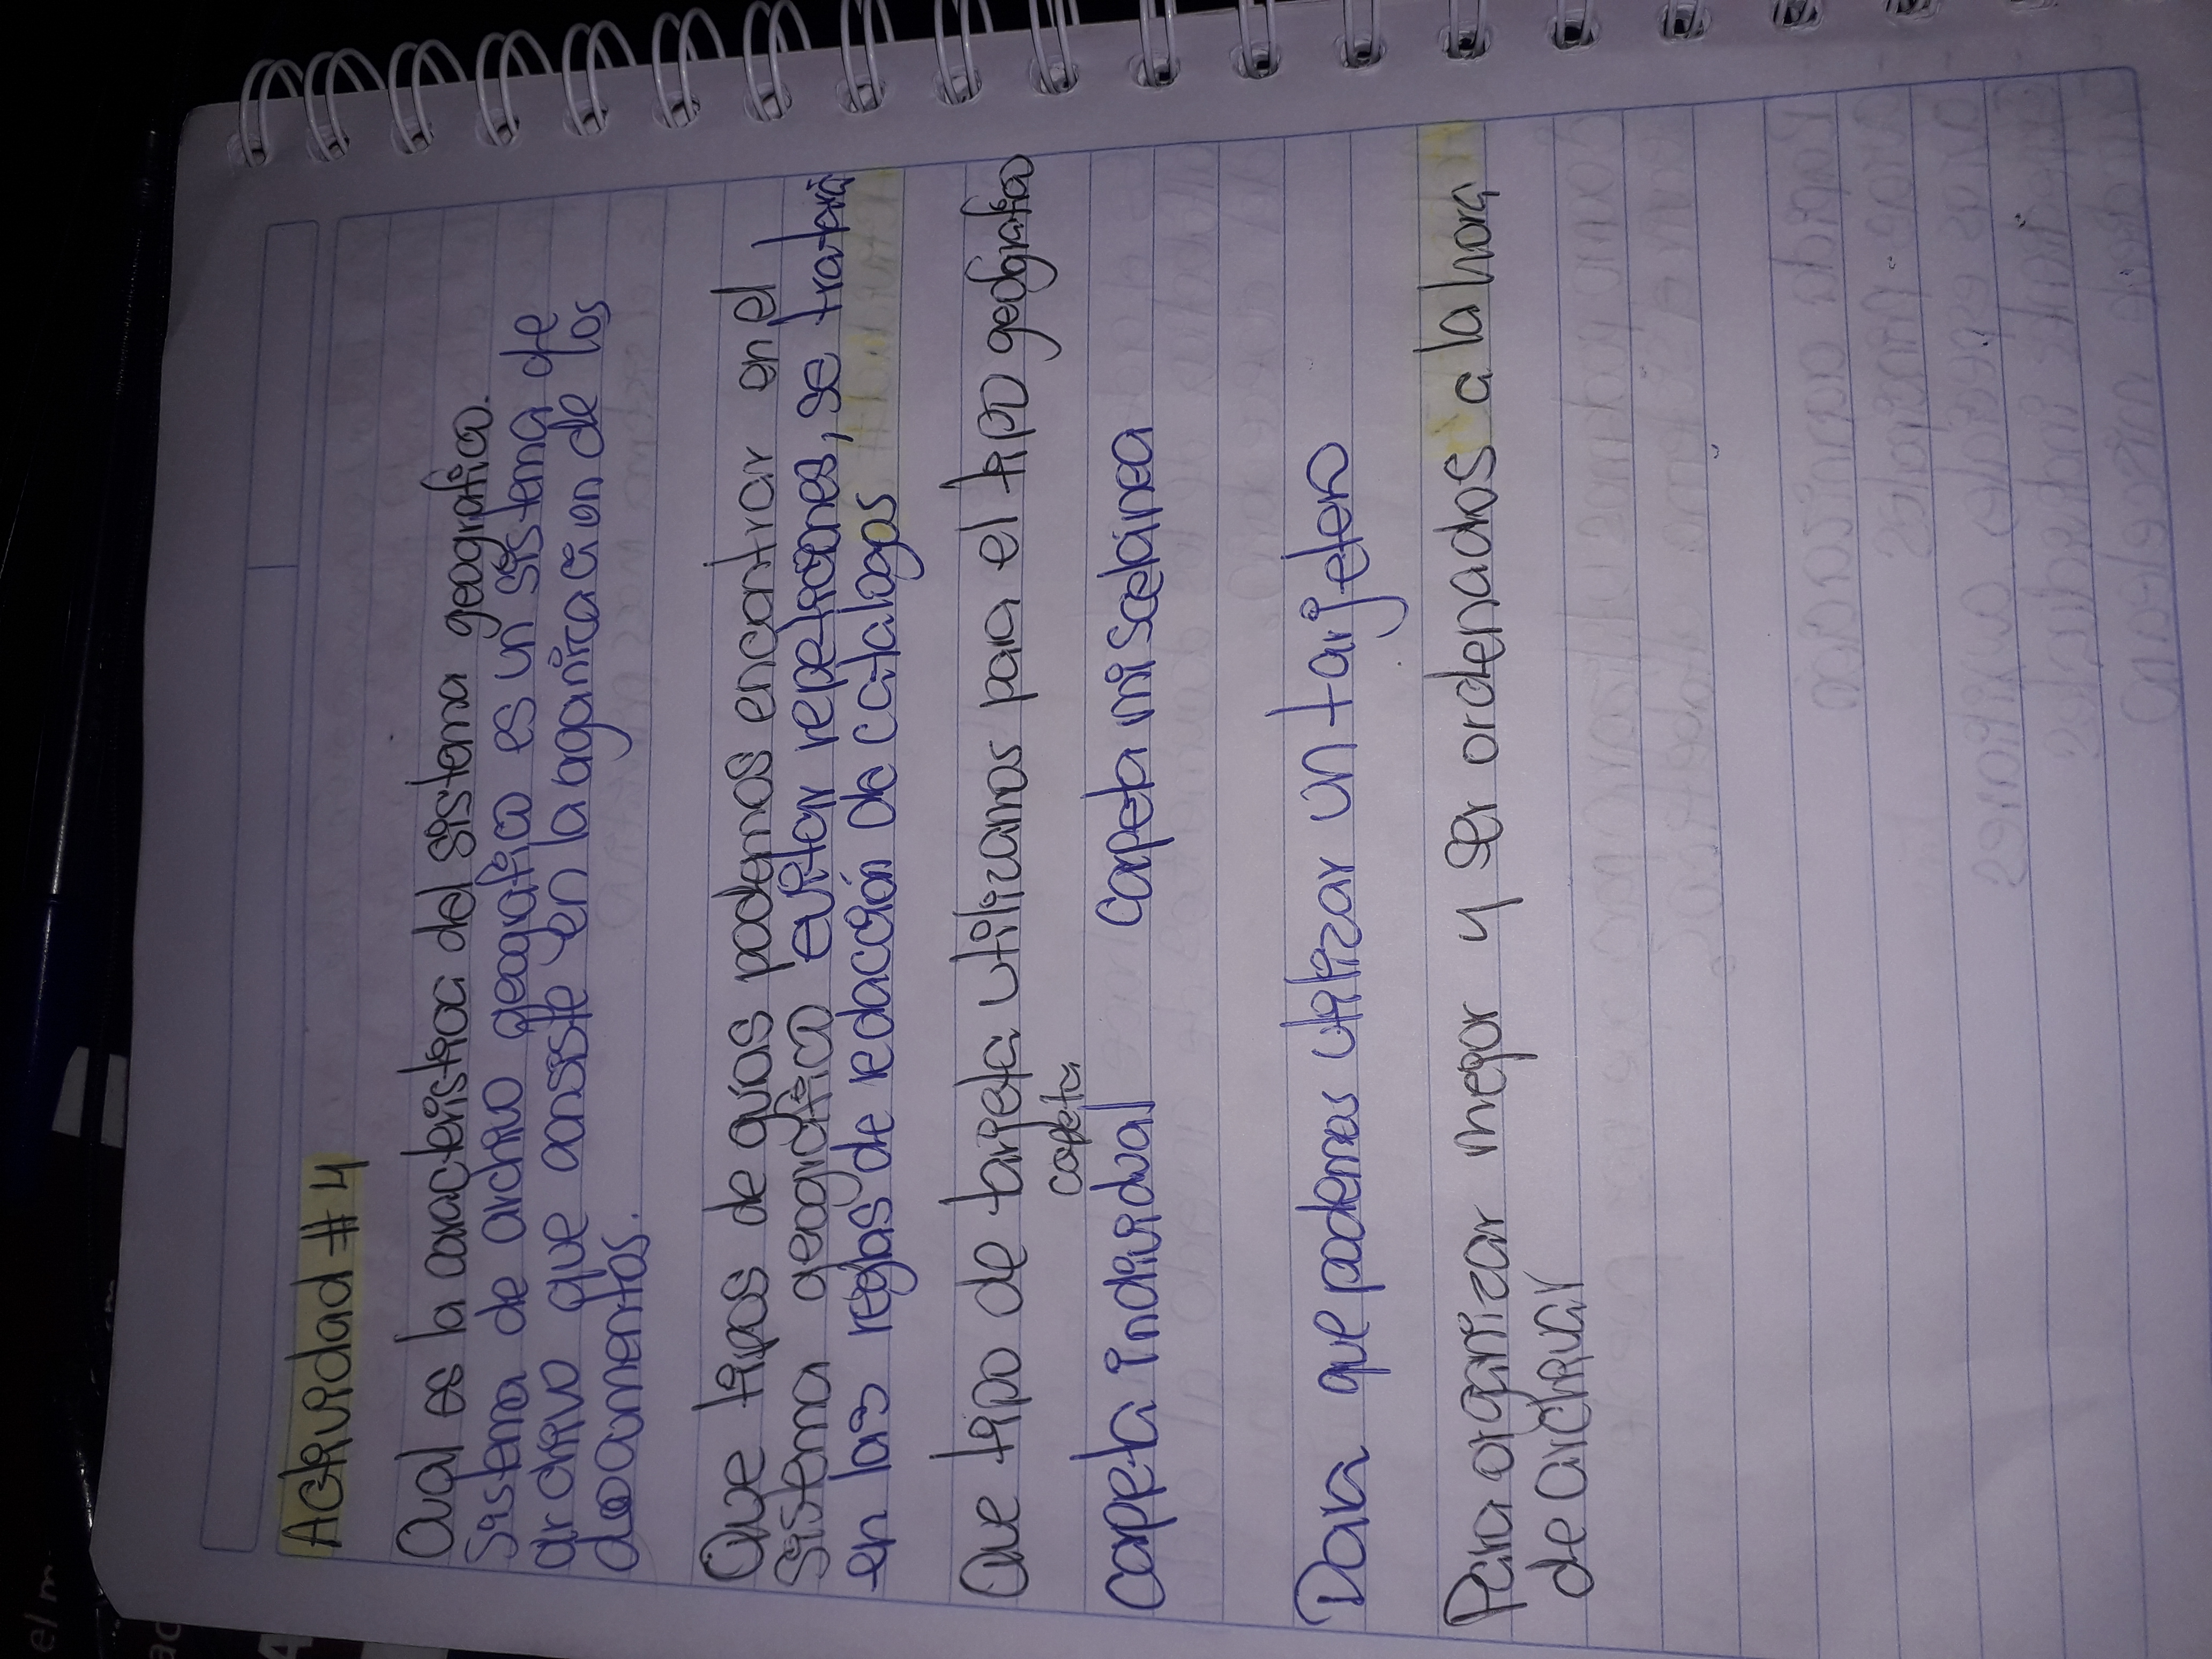 Actividad #4
Cual es la caracteristica del sistema geografico.
Sistema de archivo geografico es un sistema de
archivo que consiste en la oganizacion de los
documentos.
Que tipos de guias podemos encontrar en el
sistema geografico evitar repeticiones, se tratará
en las reglas de redacción de catalogos
Que tipo de targeta utilizamos para el tipo geógrafico
carpeta
carpeta individual carpeta miscelánea
Para que podemos utilizar un tarjetero
Para organizar megor y ser ordenados a la hora
de archivar